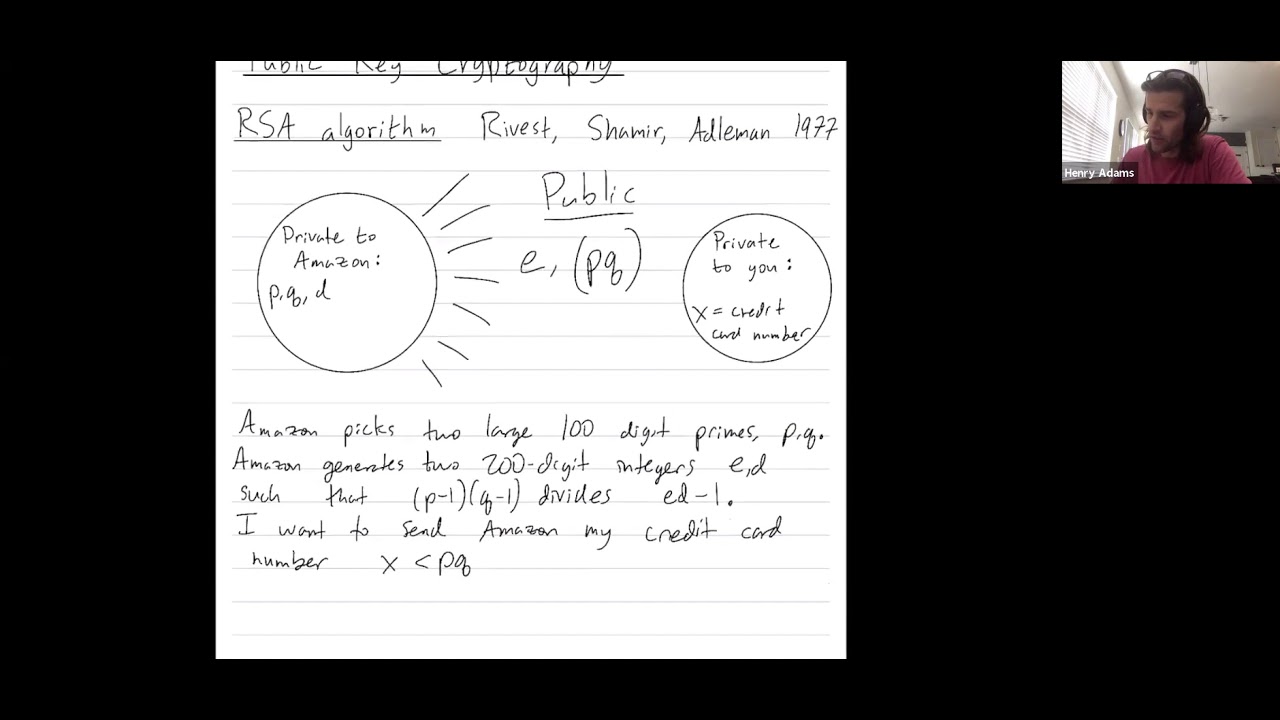 Public Key Cryptography
RSA algorithm Rivest, Shamir, Adleman 1977
Public
e, (pq)
Private to
Amazon:
p,q, d
Private
to you:
x = credit
card number
Amazon picks two large 100 digit primes, p,q.
Amazon generates two 200-digit integers e,d
such that (p-1)(q-1) divides ed-1.
I want to send Amazon my credit card
number x < pq
Henry Adams